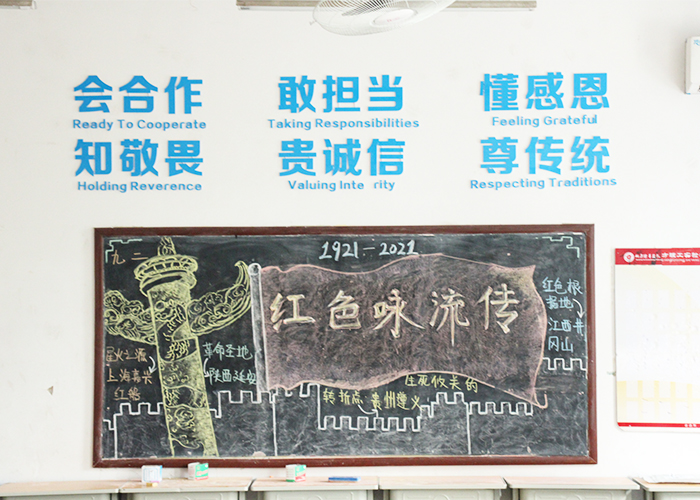 会合作
Ready To Cooperate
敢担当
Taking Responsibilities
懂感恩
Feeling Grateful
知敬畏
Holding Reverence
贵诚信
Valuing Inte rity
尊传统
Respecting Traditions
九二
1921-2021
红色咏流传
红色根
据地
↓
江西井
冈山
星火之源
上海嘉兴
红船
革命圣地
陕西延安
生死攸关的
转折点
贵州遵义